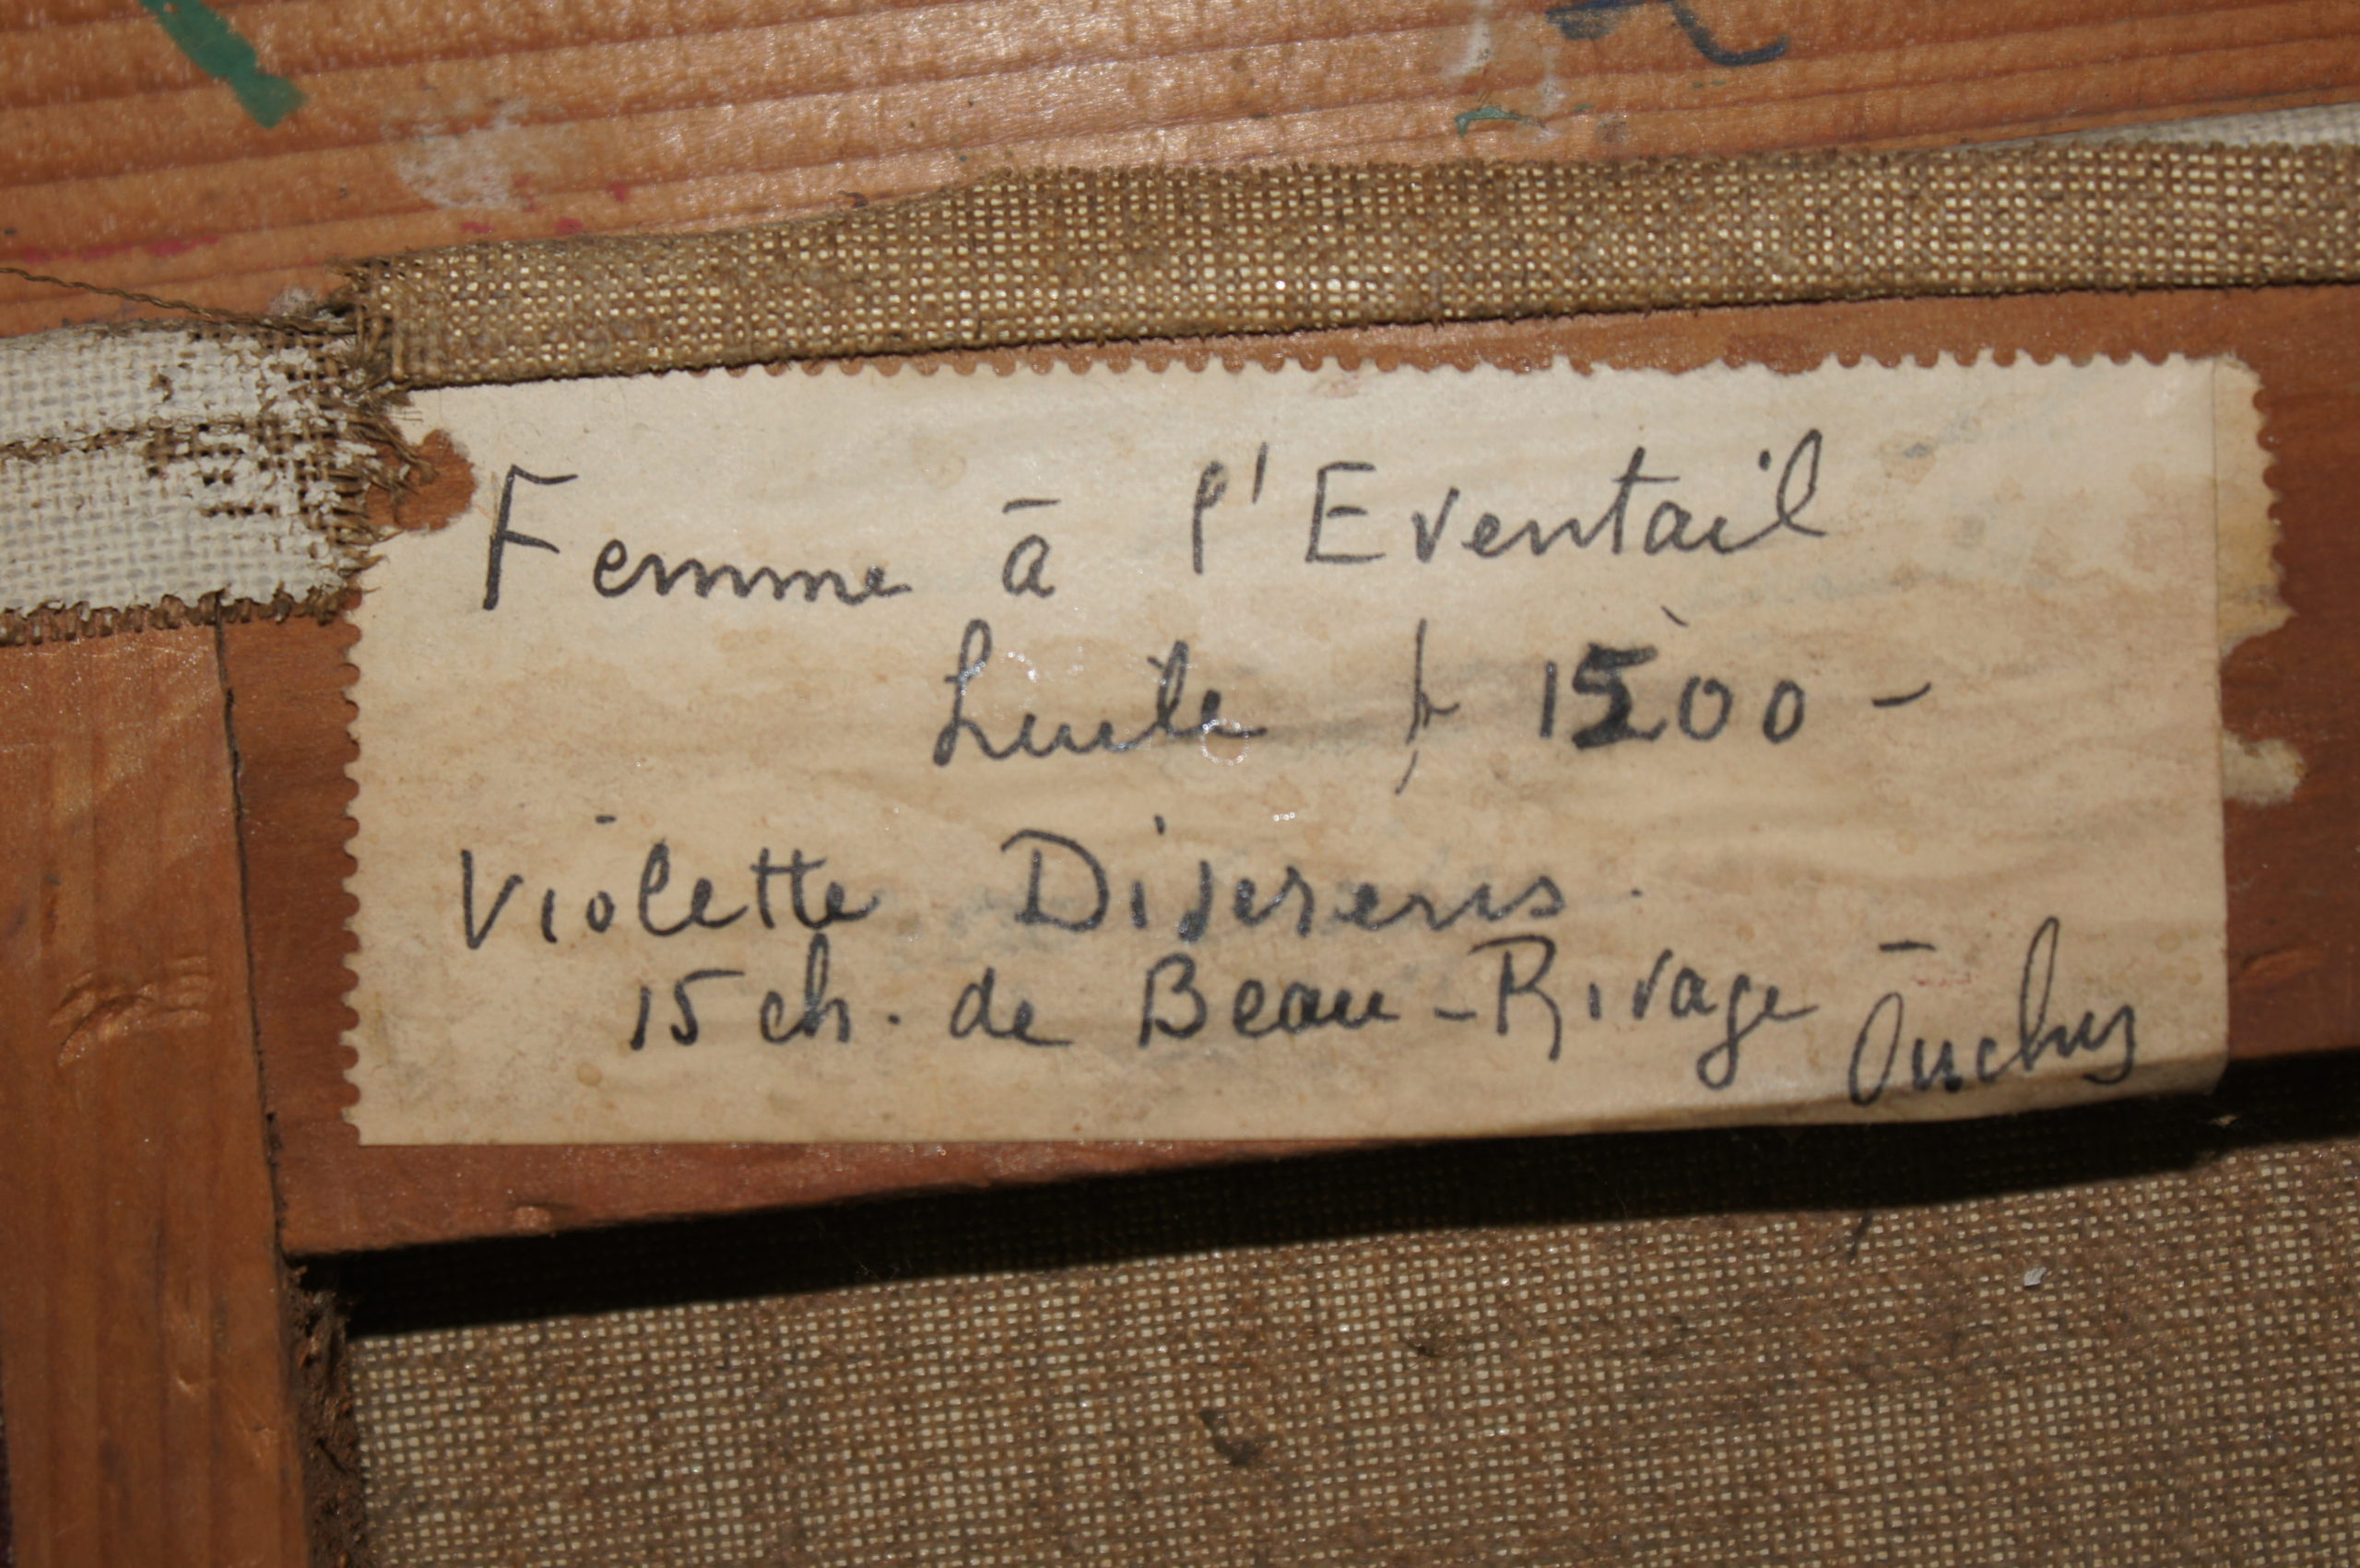 Femme à l'Eventail
huile fr 1500 -
Violette Diserens.
15 ch. de Beau-Rivage - Ouchy